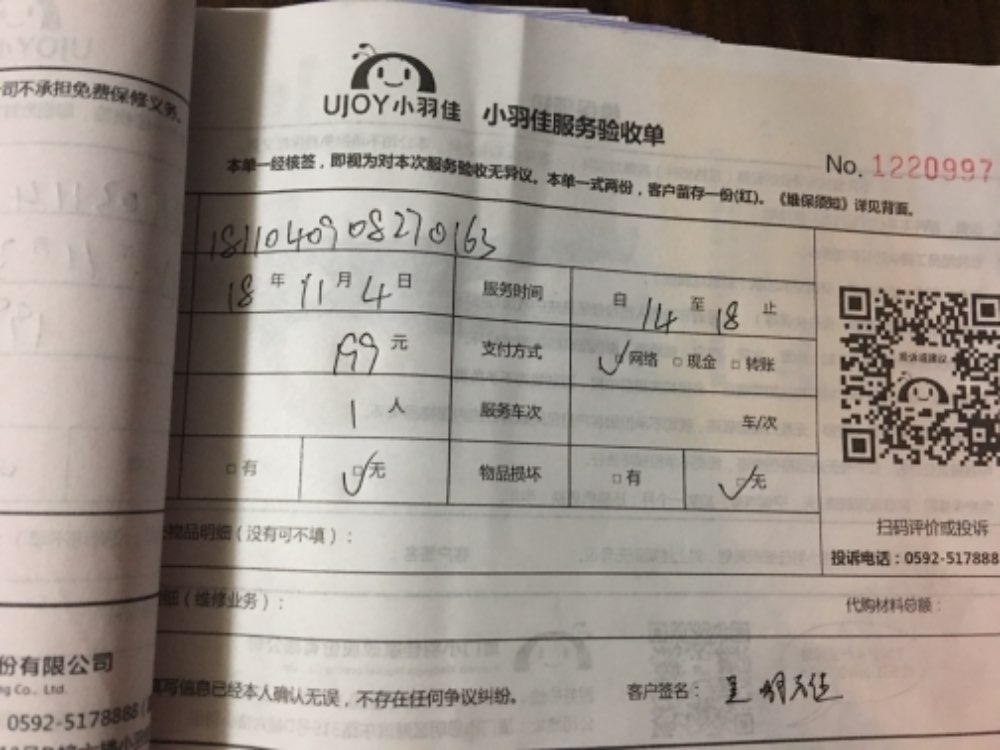 司不承担免费保修义务。
UJOY小羽佳 小羽佳服务验收单
No. 1220997
本单一经核签，即视为对本次服务验收无异议。本单一式两份，客户留存一份(红)。《维保须知》详见背面。
1811040908270163
18 年 11 月 4 日 服务时间 自 14 至 18 止
199 元 支付方式 网络 现金 转账
1 人 服务车次 车/次
有 无 物品损坏 有 无
投诉或建议
扫码评价或投诉
投诉电话：0592-517888
物品明细（没有可不填）：
（维修业务）： 代购材料总额：
份有限公司
ng Co., Ltd.
填写信息已经本人确认无误，不存在任何争议纠纷。 客户签名：
0592-5178888